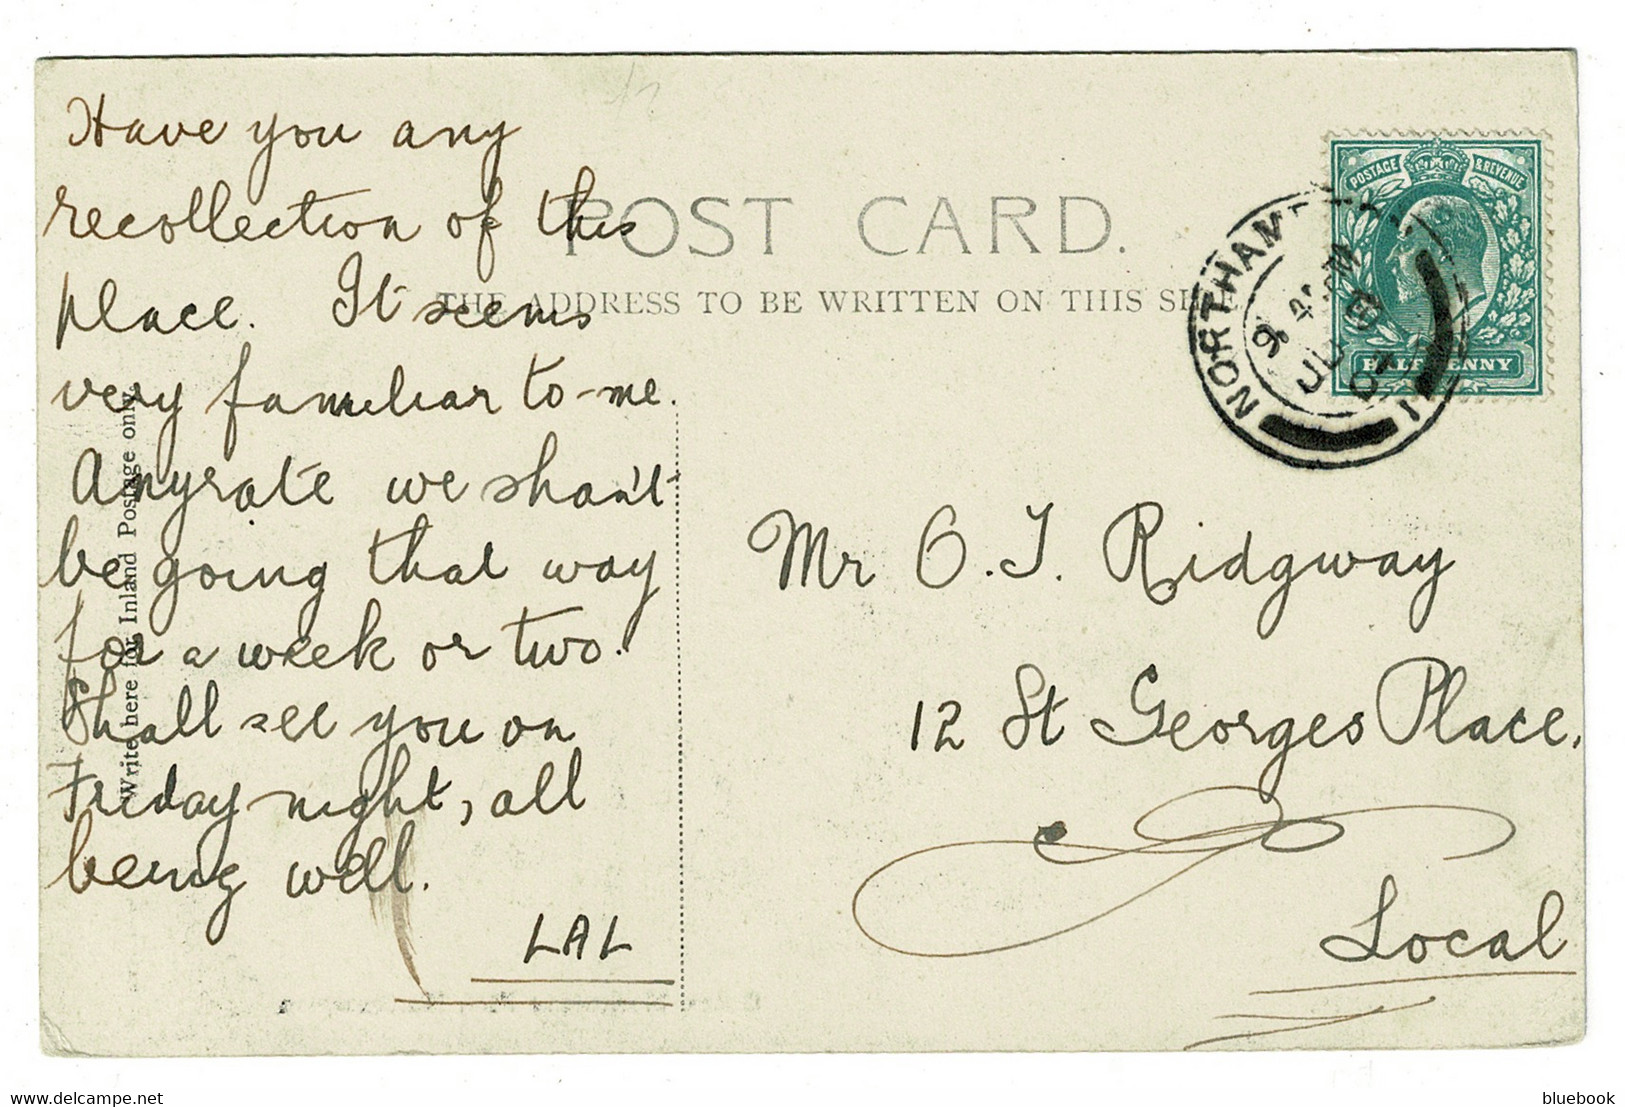 Have you any
recollection of this
place. It seems
very familiar to-me.
Anyrate we shan't
be going that way
for a week or two.
Shall see you on
Friday night, all
being well.
LAL
Write here for Inland Postage only.
POST CARD.
THE ADDRESS TO BE WRITTEN ON THIS SIDE
POSTAGE & REVENUE
HALFPENNY
Mr O. J. Ridgway
12 St Georges Place,
Local
delcampe.net
bluebook